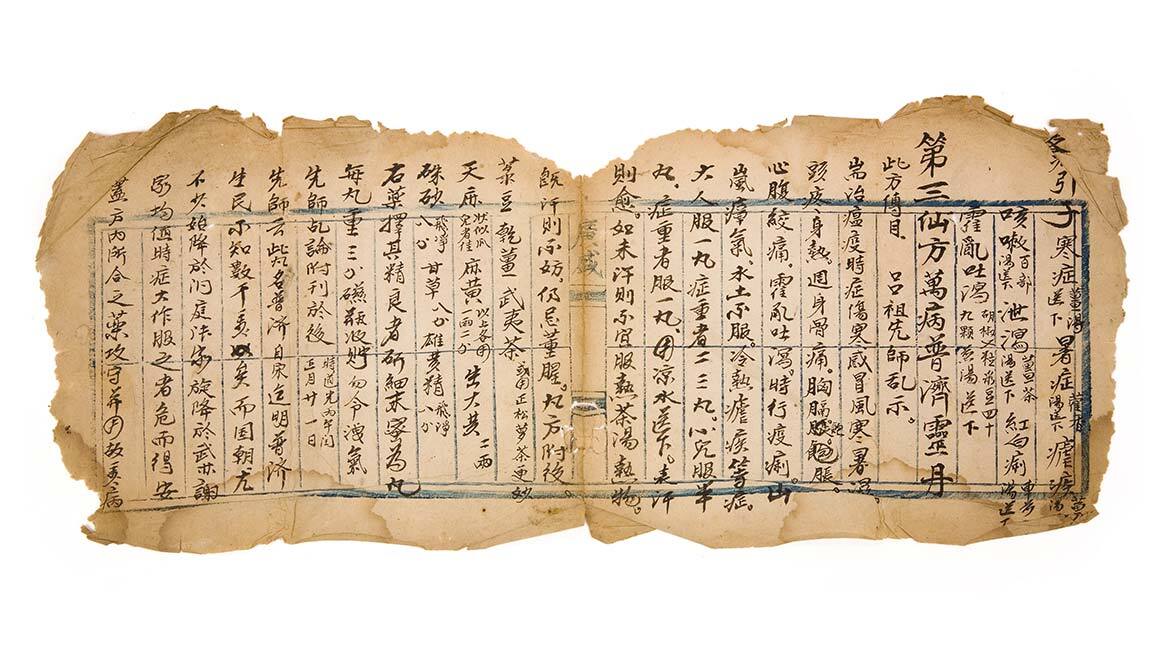 引子 寒症 薑湯送下 暑症 藿香湯送下 瘧疾
咳嗽 百部湯送下 泄瀉 薑茶湯送下 紅白痢
霍亂吐瀉 胡椒 菉豆四十九顆煎湯送下
第三仙方萬病普濟靈丹
此方傳自 呂祖先師乩示
耑治瘟疫時症傷寒感冒風寒暑濕
頭疼身熱。週身骨痛。胸膈飽脹。
心腹絞痛。霍亂吐瀉。時行疫痢。山
嵐瘴氣。水土不服。冷熱瘧疾等症。
大人服一丸症重者二三丸。小兒服半
丸。症重者服一丸。用凉水送下。表汗
則愈。如未汗則不宜服熱茶湯熱物。
既汗則不妨。仍忌葷腥。丸方附後。
菉豆 乾薑 武夷茶 或用正松蘿茶更妙
天麻 状似瓜完者佳 麻黄 以上各用一兩二分 生大黄 三兩
硃砂 八分 飛凈 甘草 八分 雄黄精 飛凈八分
右藥擇其精良者研細末蜜為丸
每丸重三分磁瓶收貯勿令洩氣
先師乩論附刊於後 時道光丙午閏正月廿一日
先師云此類名普濟自康迄明普濟
生民不知數千矣而国朝尤
不少始降於洞庭法家旋降於武夷謝
家均值時症大作服之者危而得安
蓋方内所合之藥攻守并用故爰病